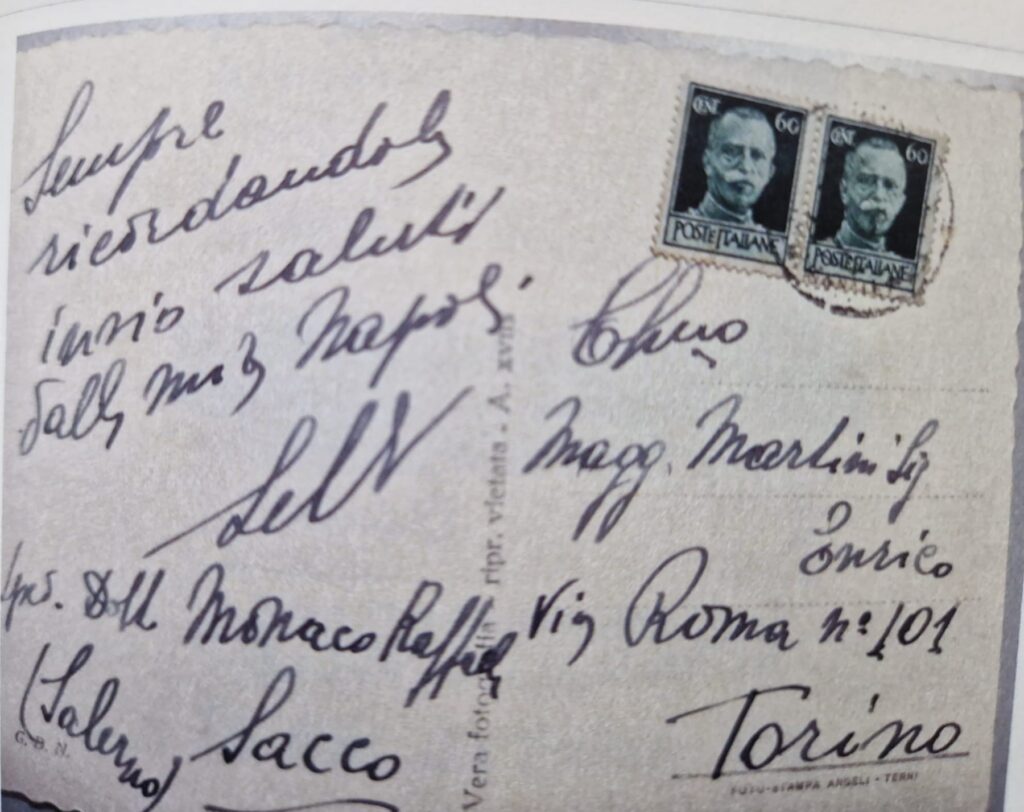 Sempre
ricordandola
invio saluti
dalla mia Napoli
Dott Monaco Raffaele
(Salerno) Sacco
G. B. N.
Vera fotografia - ripr. vietata - A. XVIII
CENT 60
POSTE ITALIANE
CENT 60
POSTE ITALIANE
Ch/mo
Magg. Martini Sig
Enrico
Via Roma nº 101
Torino
FOTO-STAMPA ANGELI - TERNI